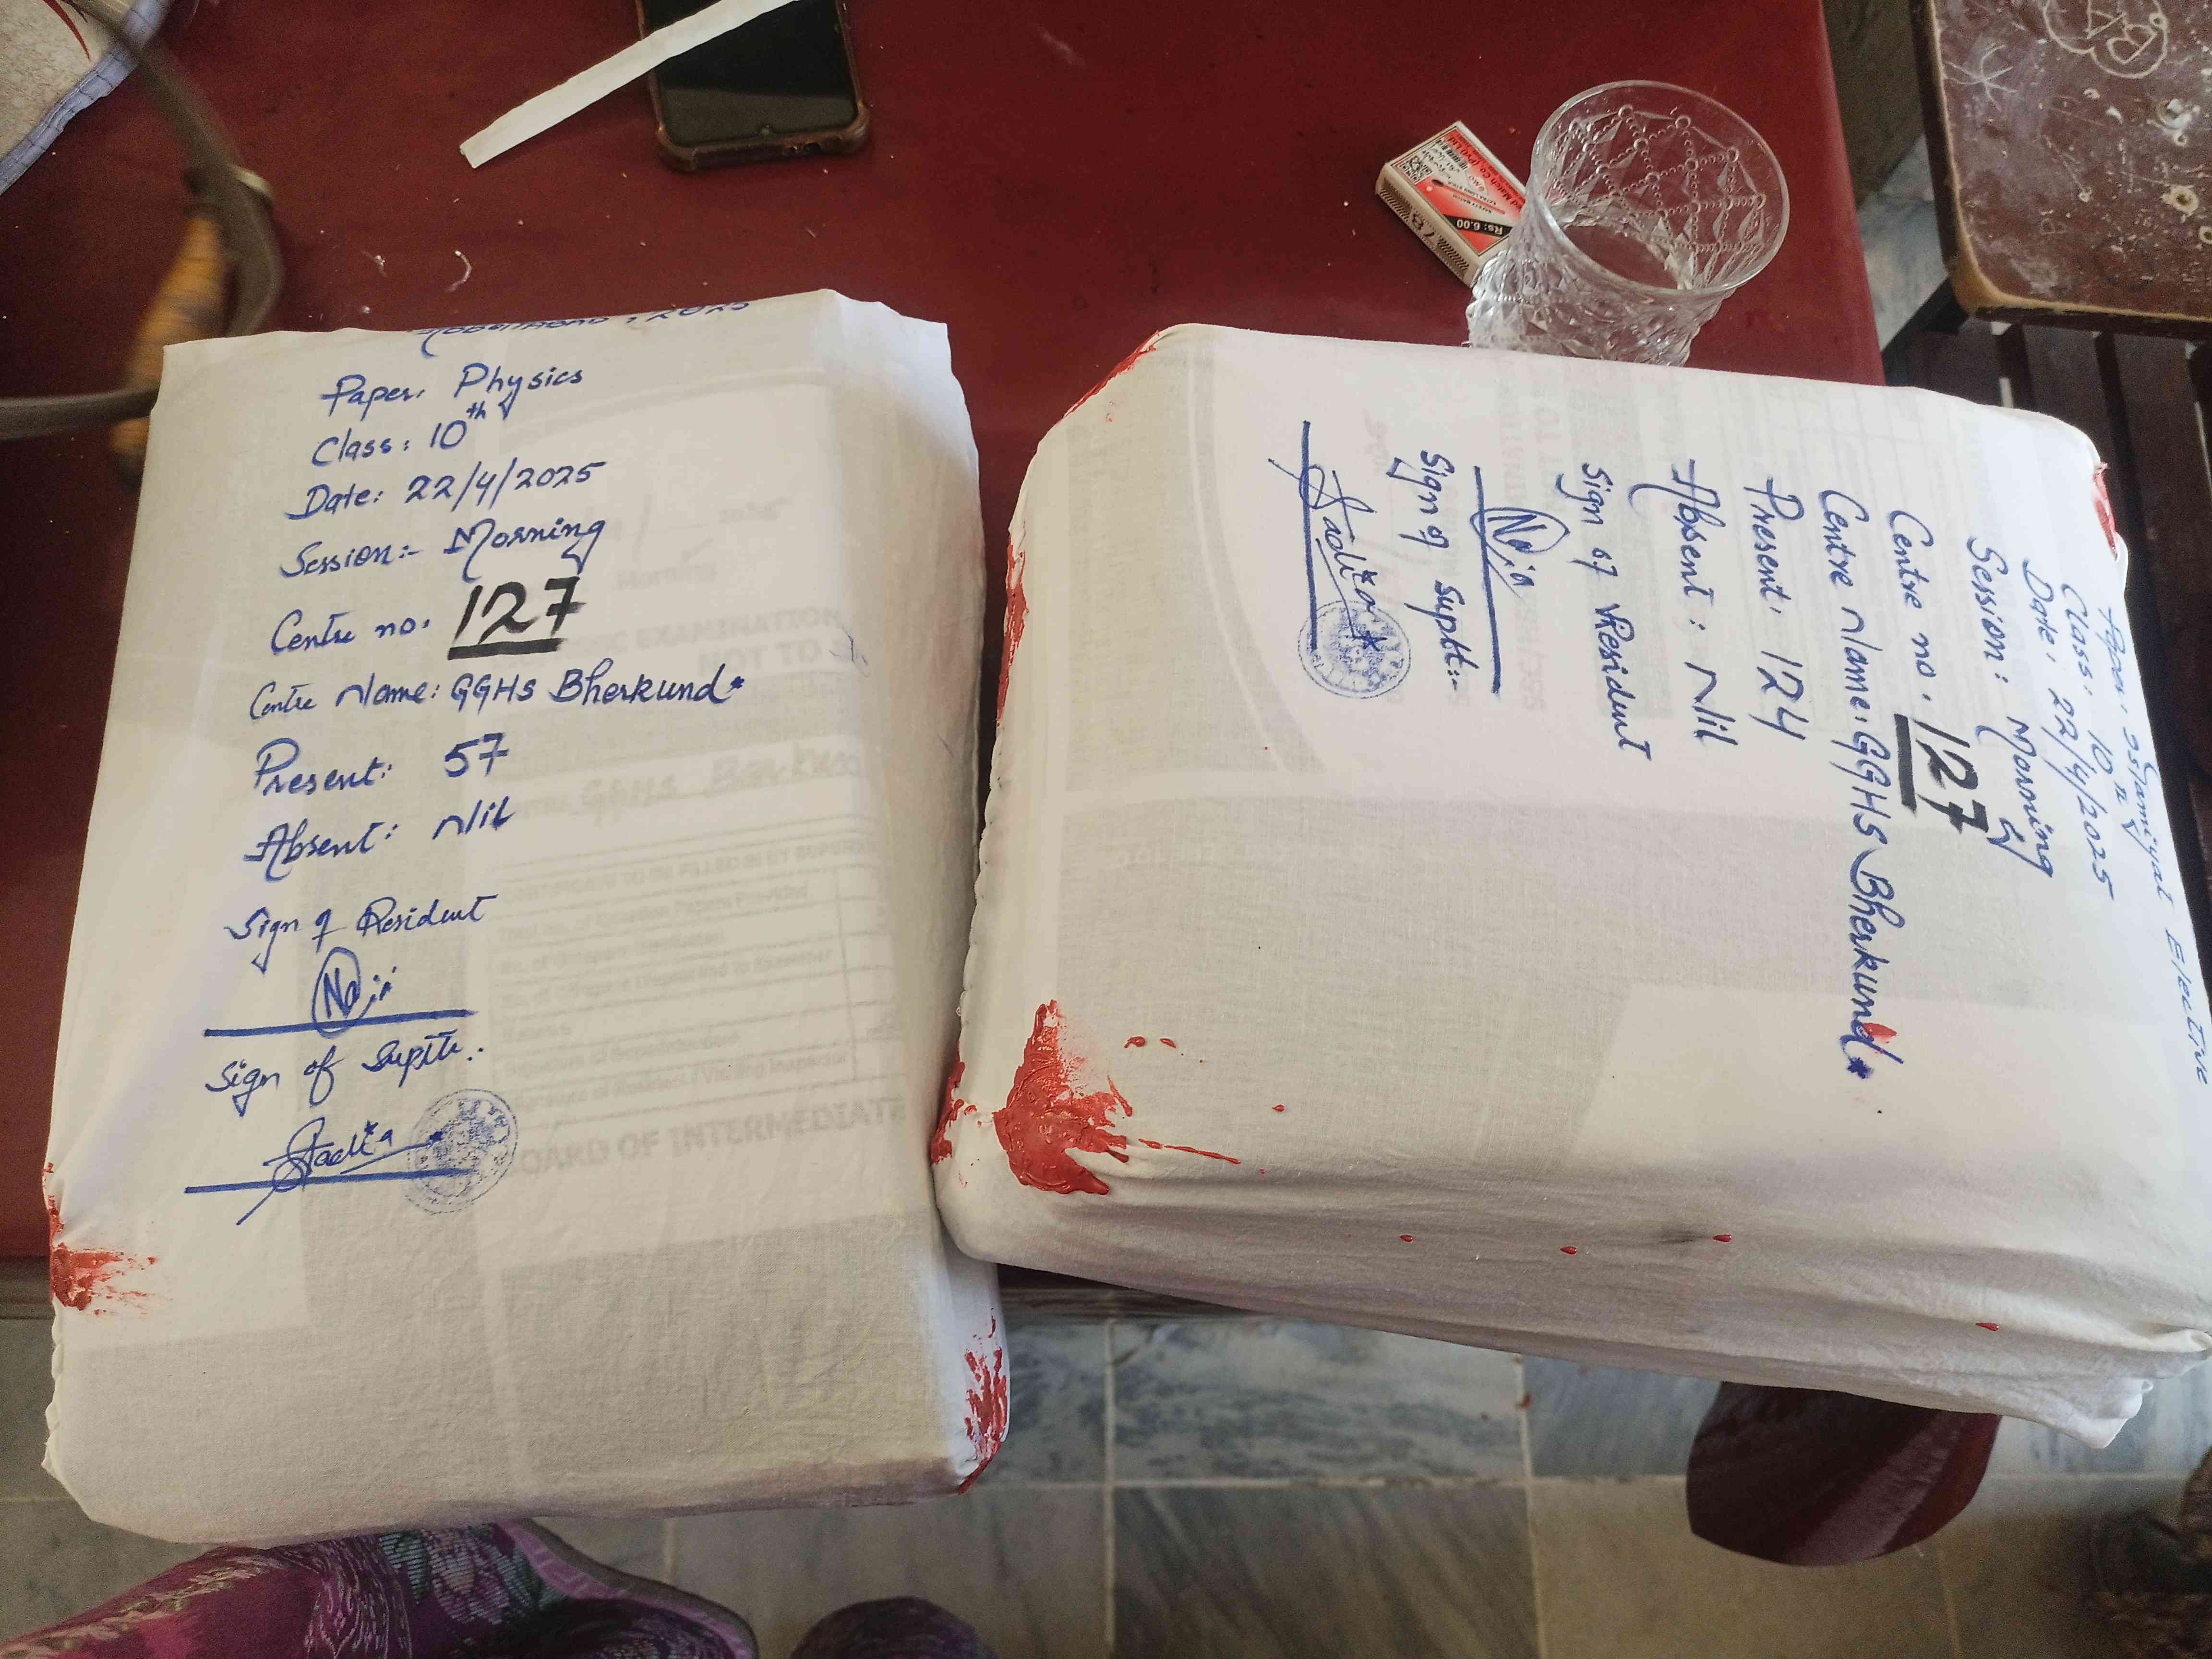 Abbottabad, 2025
Paper. Physics
Class: 10th
Date: 22/4/2025
Session:- Morning
Centre no. 127
Centre Name: GGHS Bherkund
Present: 57
Absent: Nil
Sign of Resident
Sign of Suptt:
Sadia
BOARD OF INTERMEDIATE
Paper: Islamiyat Elective
Class: 10th
Date: 22/4/2025
Session: Morning
Centre no. 127
Centre Name. GGHS Bherkund
Present. 124
Absent: Nil
Sign of Resident
Sign of Suptt:-
Sadia
Rs: 6.00